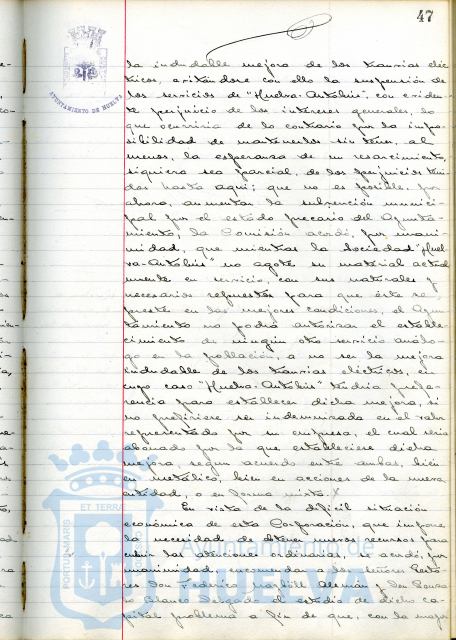 47
AYUNTAMIENTO DE HUELVA
la indudable mejora de los tranvias eléc-
tricos, evitándose con ello la suspensión de
los servicios de "Huelva-Autobús", con eviden-
te perjuicio de los intereses generales, lo
que ocurriria de lo contrario por la impo-
sibilidad de mantenerlos sin tener, al
menos, la esperanza de un resarcimiento,
siquiera sea parcial, de los perjuicios teni-
dos hasta aqui; que no es posible, por
ahora, aumentar la subvención munici-
pal por el estado precario del Ayunta-
miento, la Comisión acordó, por unani-
midad, que mientras la Sociedad "Huel-
va-Autobús" no agote su material actual
mente en servicio, con sus naturales y
necesarios repuestos para que éste se
preste en las mejores condiciones, el Ayun-
tamiento no podrá autorizar el estable-
cimiento de ningún otro servicio análo-
go en la población, a no ser la mejora
indudable de los tranvias eléctricos, en
cuyo caso "Huelva-Autobús" tendria prefe-
rencia para establecer dicha mejora, si
no prefiriere ser indemnizada en el valor
representado por su empresa, el cual seria
abonado por la que estableciere dicha
mejora, segun acuerdo entre ambas, bien
en metálico, bien en acciones de la nueva
entidad, o en forma mixta.
En vista de la dificil situación
económica de esta Corporación, que impone
la necesidad de obtener nuevos recursos para
cubrir las atenciones ordinarias, se acordó, por
unanimidad, encomendar a los señores Gesto-
res Don Federico Alemán, y Don
Blanco Delgado el estudio de dicho ca-
pital problema a fin de que, con la mayor
PORTUS MARIS ET TERRAE
Ayuntamiento de
HUELVA